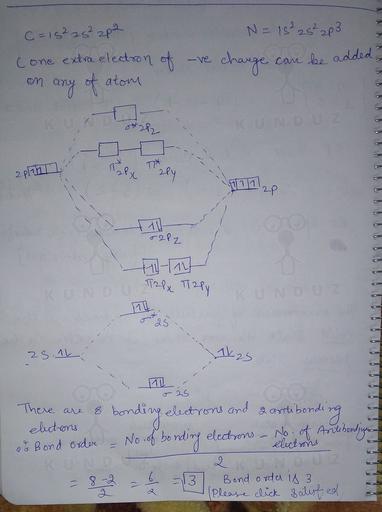 C = 1s² 2s² 2p² N = 1s² 2s² 2p³
(one extra electron of -ve charge can be added
on any of atom
σ*2pz
π*2px π*2py
2p 2p
σ2pz
π2px π2py
σ*2s
2s 2s
σ2s
There are 8 bonding electrons and 2 antibonding
electrons
∴ Bond order = No. of bonding electrons - No. of Antibonding
electrons
2
= 8-2 / 2 = 6 / 2 = 3 Bond order is 3
(Please click Satisfied
KUNDUZ
KUNDUZ
KUNDUZ
KUNDUZ